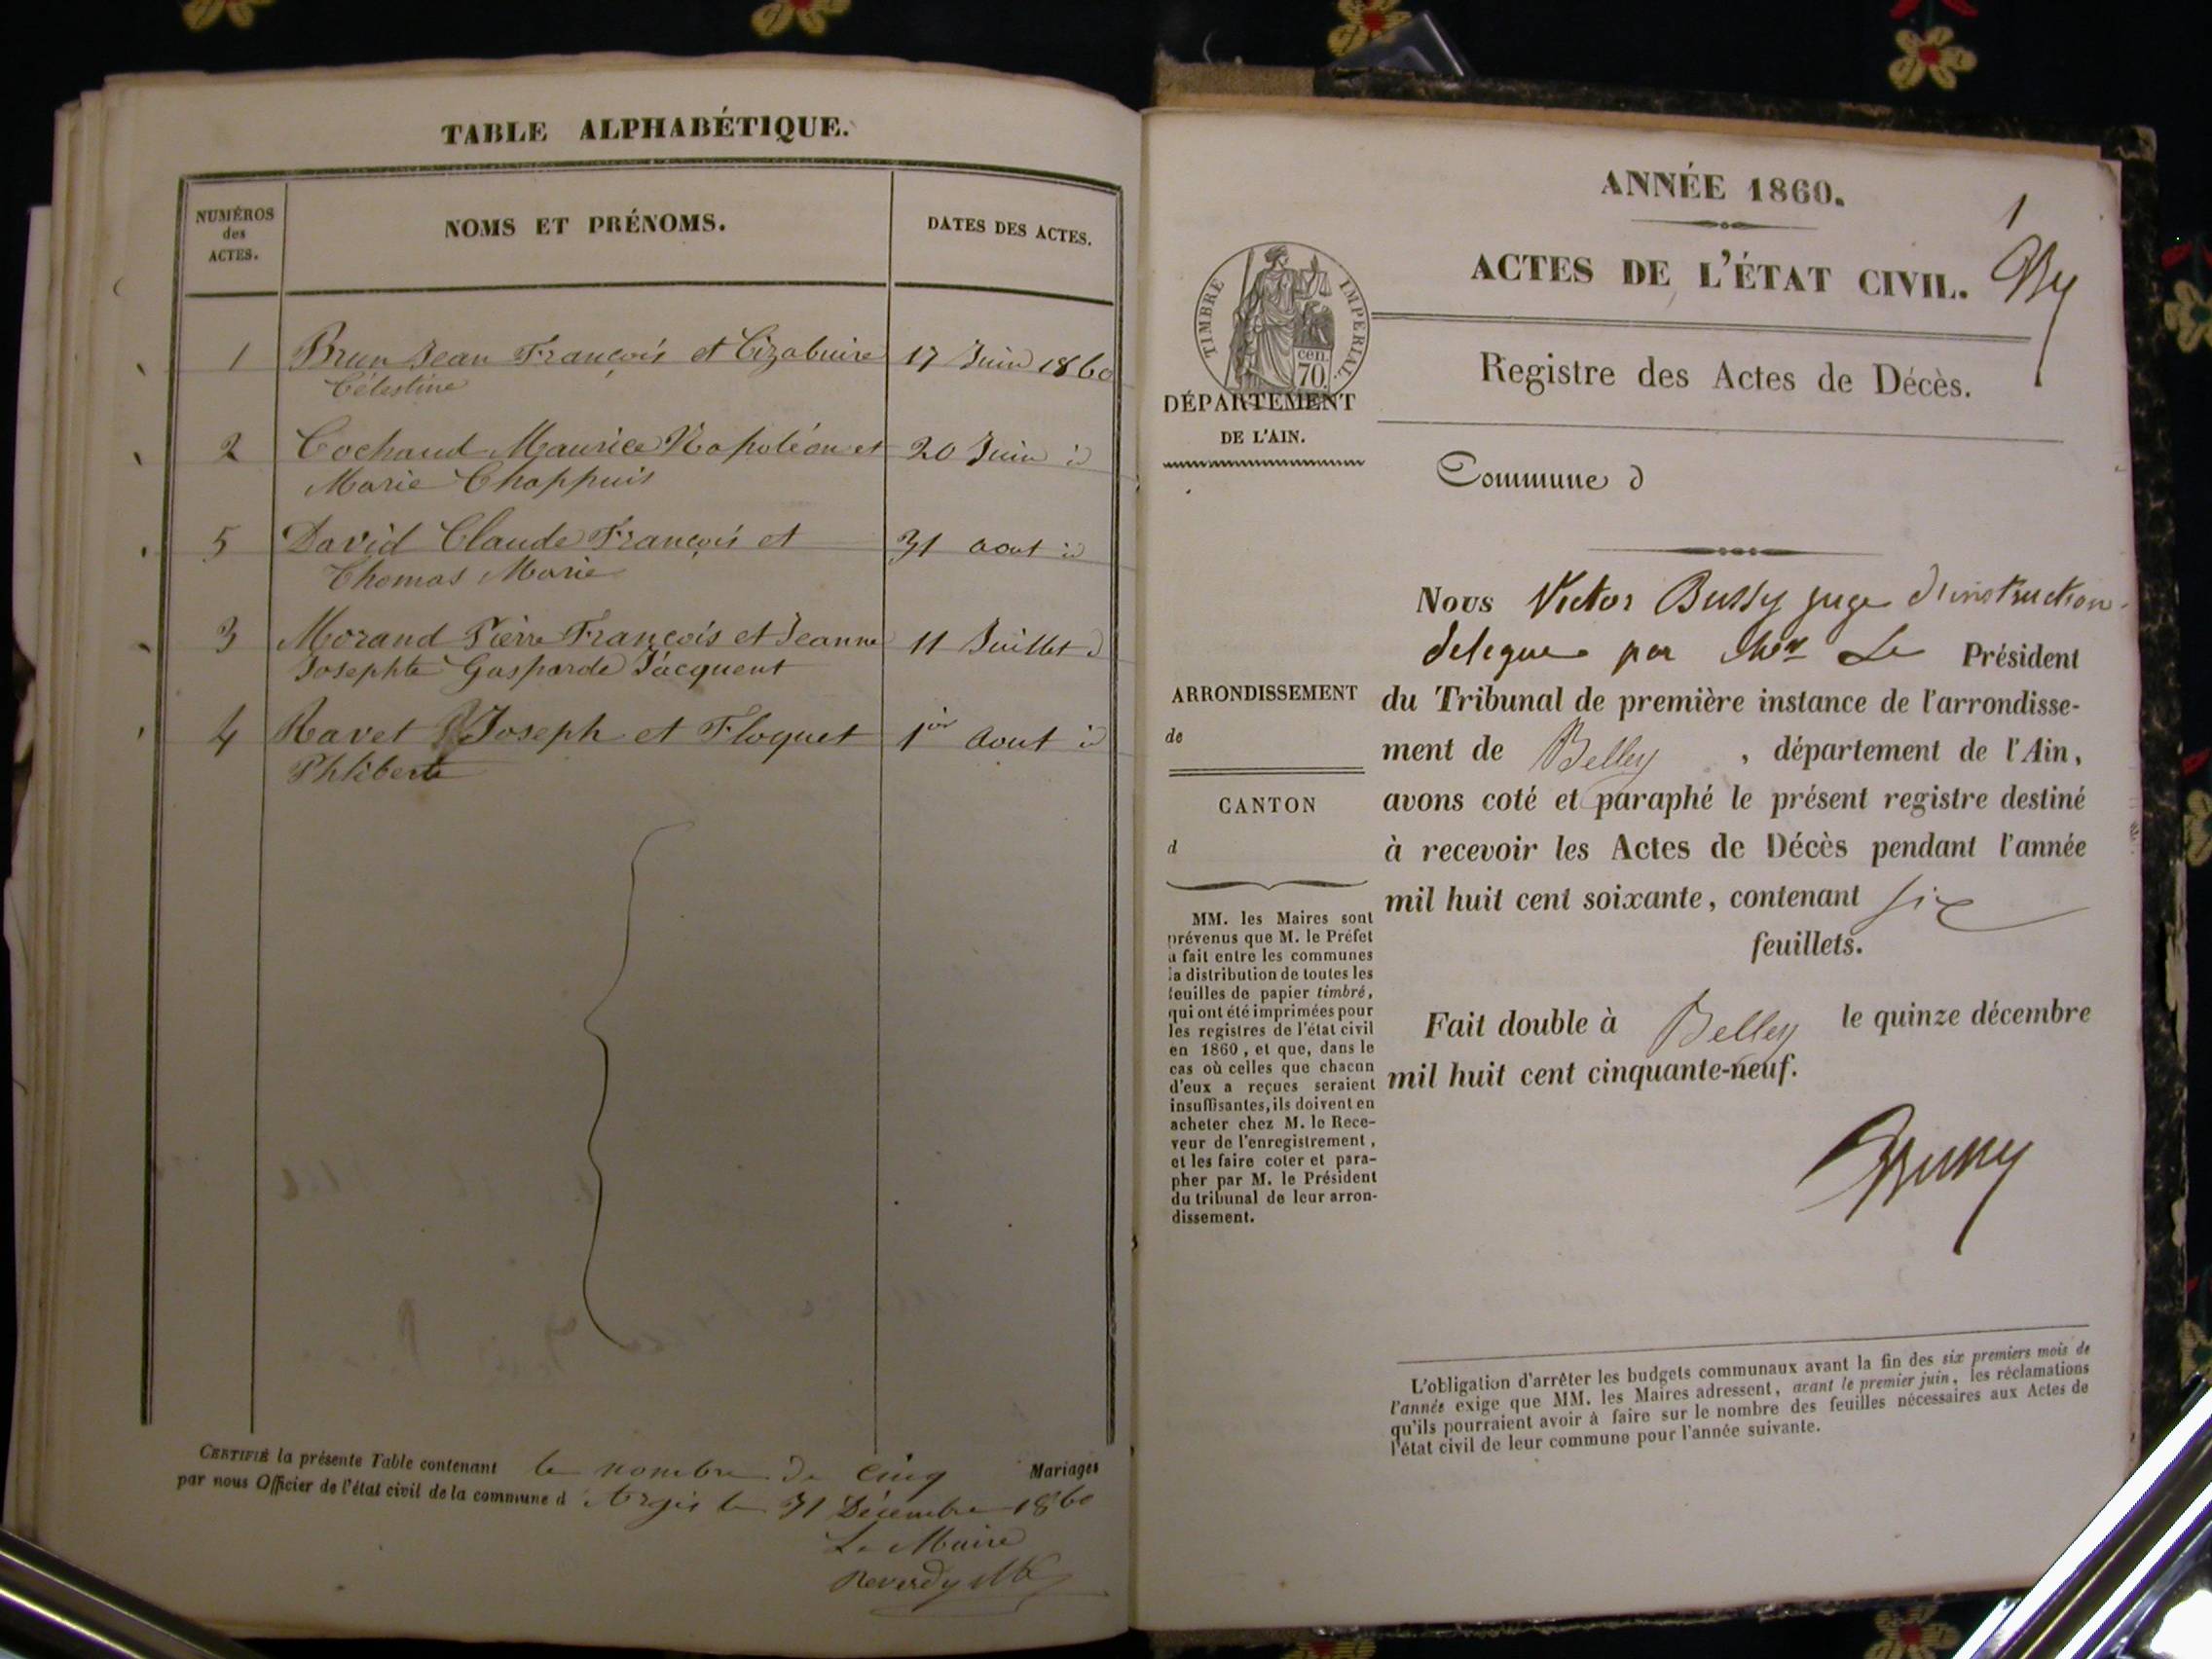 TABLE ALPHABÉTIQUE.
NUMÉROS
des
ACTES.
NOMS ET PRÉNOMS.
DATES DES ACTES.
1 Brun Jean François et 17 Juin 1860
Célestine
2 Cochaud Maurice Napoléon et 20 Juin id
Marie Chappuis
5 David Claude François et 31 aout id
Thomas Marie
3 Morand Pierre François et Jeanne 11 Juillet id
Josephte Gasparde Jacquent
4 Ravet Joseph et Floquet 1er aout id
Philiberte
CERTIFIÉ la présente Table contenant le nombre de cinq Mariages
par nous Officier de l'état civil de la commune d Argis le 31 Décembre 1860
Le Maire
Reverdy
ANNÉE 1860.
1
ACTES DE L'ÉTAT CIVIL.
By
TIMBRE IMPERIAL.
cen.
70.
Registre des Actes de Décès.
DÉPARTEMENT
DE L'AIN.
Commune d
Nous Victor Bussy juge d'instruction
delegue par Mr Le Président
du Tribunal de première instance de l'arrondisse-
ment de Belley , département de l'Ain,
avons coté et paraphé le présent registre destiné
à recevoir les Actes de Décès pendant l'année
mil huit cent soixante, contenant six
feuillets.
Fait double à Belley le quinze décembre
mil huit cent cinquante-neuf.
Bussy
ARRONDISSEMENT
de
CANTON
d
MM. les Maires sont
prévenus que M. le Préfet
a fait entre les communes
la distribution de toutes les
feuilles de papier timbré,
qui ont été imprimées pour
les registres de l'état civil
en 1860, et que, dans le
cas où celles que chacun
d'eux a reçues seraient
insuffisantes, ils doivent en
acheter chez M. le Rece-
veur de l'enregistrement,
et les faire coter et para-
pher par M. le Président
du tribunal de leur arron-
dissement.
L'obligation d'arrêter les budgets communaux avant la fin des six premiers mois de
l'année exige que MM. les Maires adressent, avant le premier juin, les réclamations
qu'ils pourraient avoir à faire sur le nombre des feuilles nécessaires aux Actes de
l'état civil de leur commune pour l'année suivante.